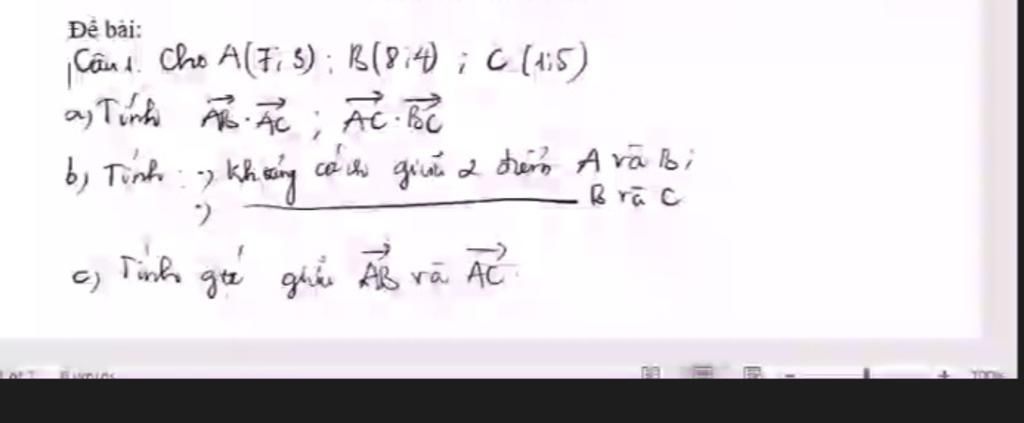 Đề bài:
Câu 1. Cho A(7; 3); B(8; 4); C(1; 5)
a) Tính $\overrightarrow{AB} \cdot \overrightarrow{AC}$ ; $\overrightarrow{AC} \cdot \overrightarrow{BC}$
b) Tính: -) Khoảng cách giữa 2 điểm A và B;
-) B và C
c) Tính góc giữa $\overrightarrow{AB}$ và $\overrightarrow{AC}$
100%